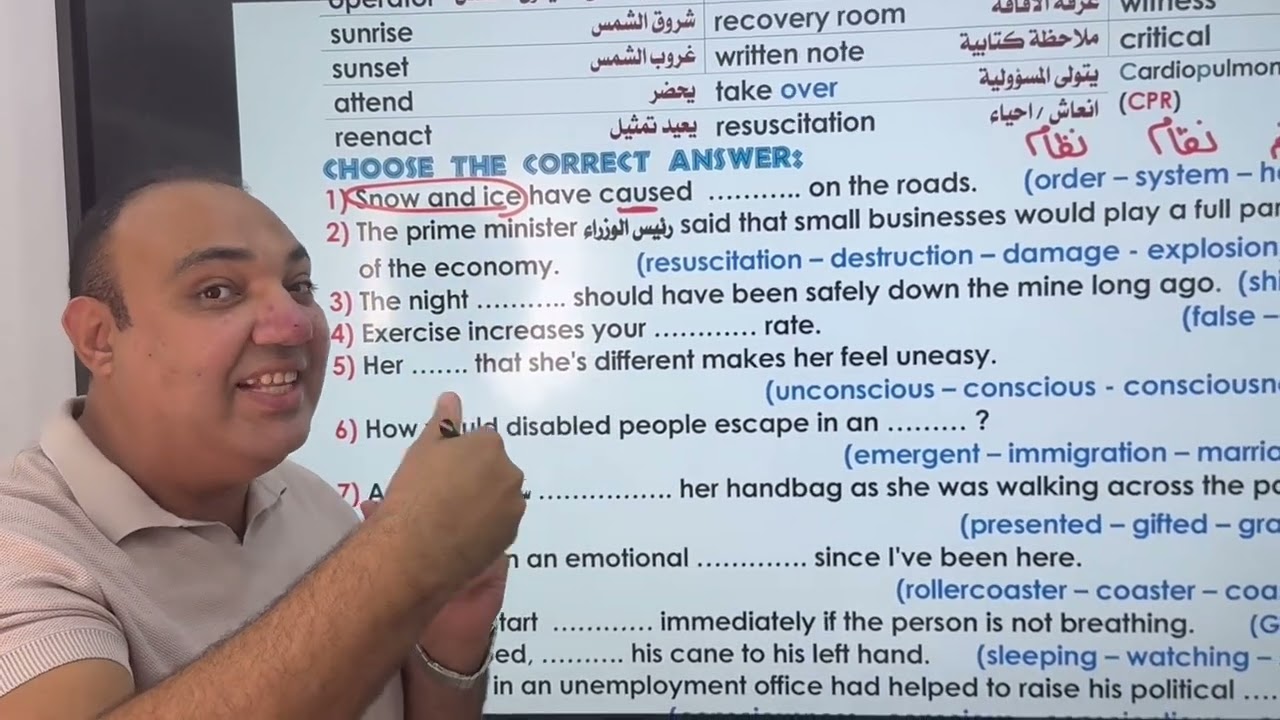 operator
sunrise شروق الشمس recovery room غرفة الافاقة witness
sunset غروب الشمس written note ملاحظة كتابية critical
attend يحضر take over يتولى المسؤولية Cardiopulmon
reenact يعيد تمثيل resuscitation انعاش / احياء (CPR)
نظام نظام
CHOOSE THE CORRECT ANSWER:
1) Snow and ice have caused ........... on the roads. (order – system – h
2) The prime minister رئيس الوزراء said that small businesses would play a full par
of the economy. (resuscitation – destruction – damage - explosion
3) The night ........... should have been safely down the mine long ago. (shi
4) Exercise increases your ............ rate. (false –
5) Her ....... that she's different makes her feel uneasy.
(unconscious – conscious - consciousn
6) How disabled people escape in an ......... ?
(emergent – immigration – marria
7) A ................ her handbag as she was walking across the pa
(presented – gifted – gra
an emotional ............. since I've been here.
(rollercoaster – coaster – coa
tart ............ immediately if the person is not breathing. (G
ed, .......... his cane to his left hand. (sleeping – watching –
in an unemployment office had helped to raise his political ....